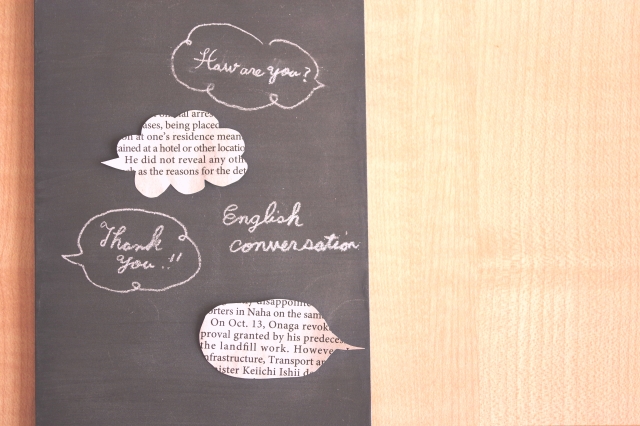 How are you?
al arres
ases, being placed
n at one's residence mean
ained at a hotel or other locatio
He did not reveal any oth
as the reasons for the det
English
conversation
Thank
you..!!
y disappointe
orters in Naha on the sam
On Oct. 13, Onaga revok
proval granted by his predeces
the landfill work. However
nfrastructure, Transport an
ister Keiichi Ishii de